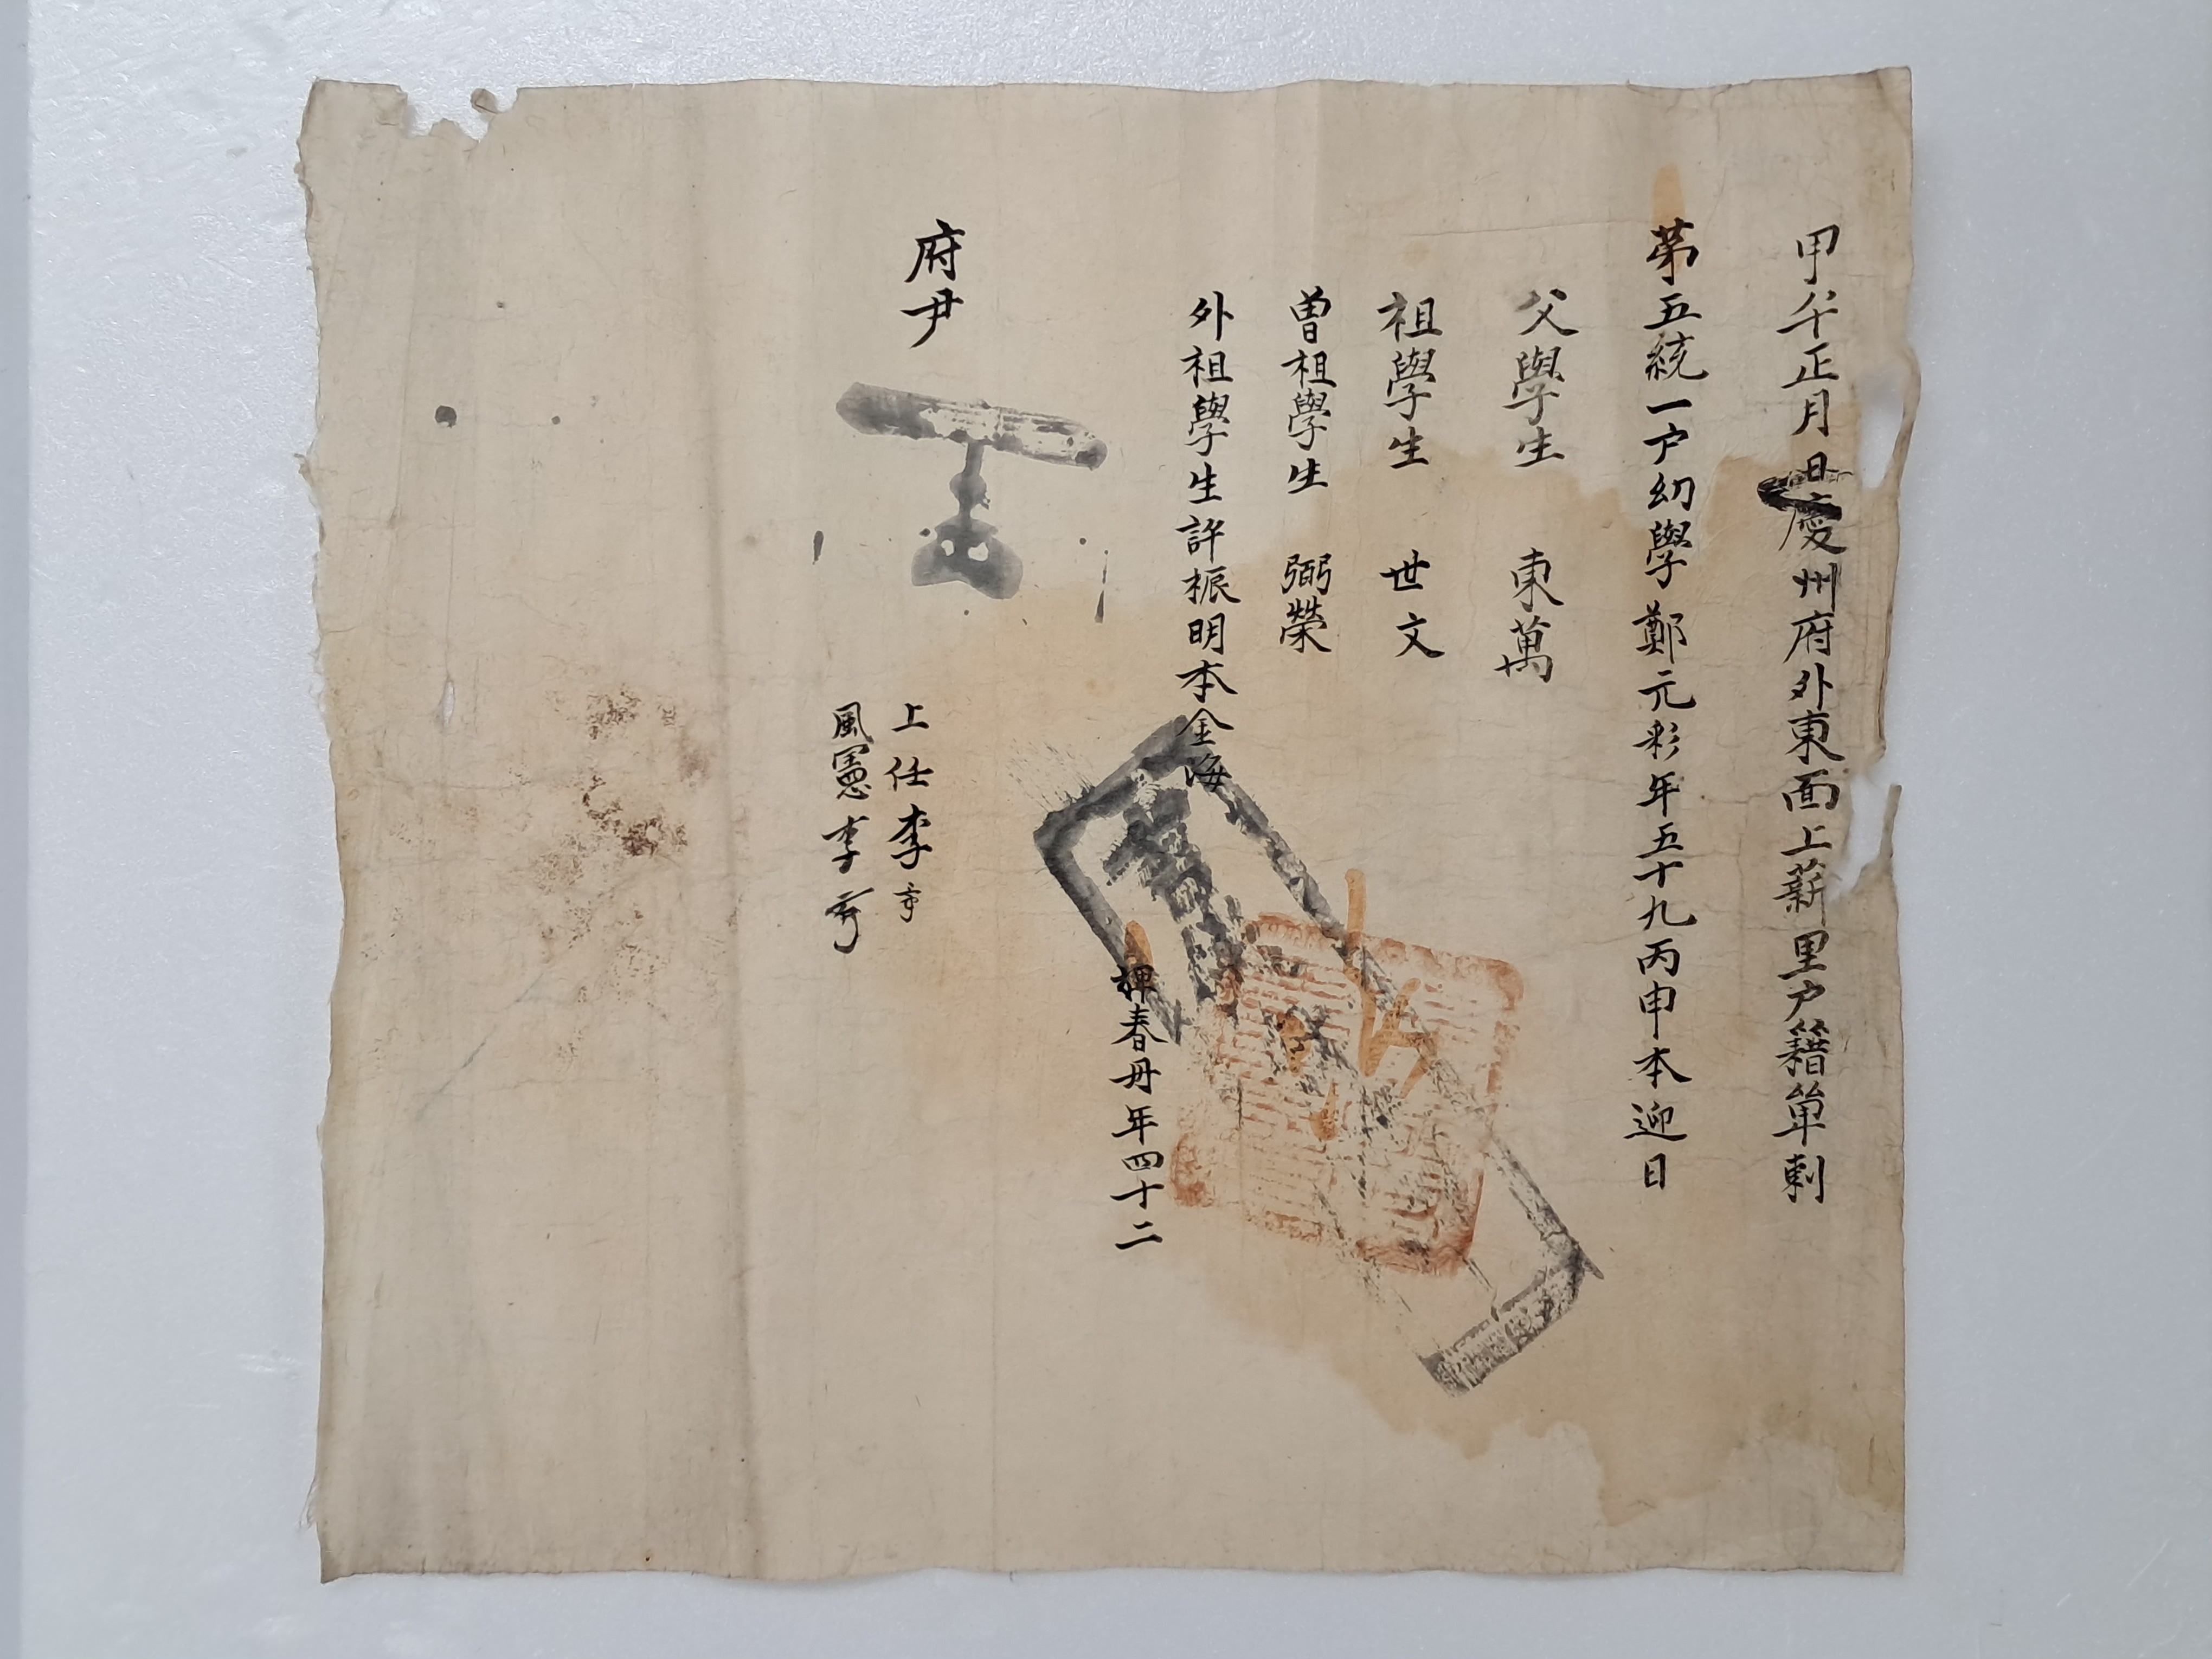 甲午正月日慶州府外東面上薪里户籍单剌
苐五統一户幼學鄭元彩年五十九丙申本迎日
父學生 東萬
祖學生 世文
曽祖學生 弼榮
外祖學生許振明本金海
婢春丹年四十二
府尹
上任李
風憲李